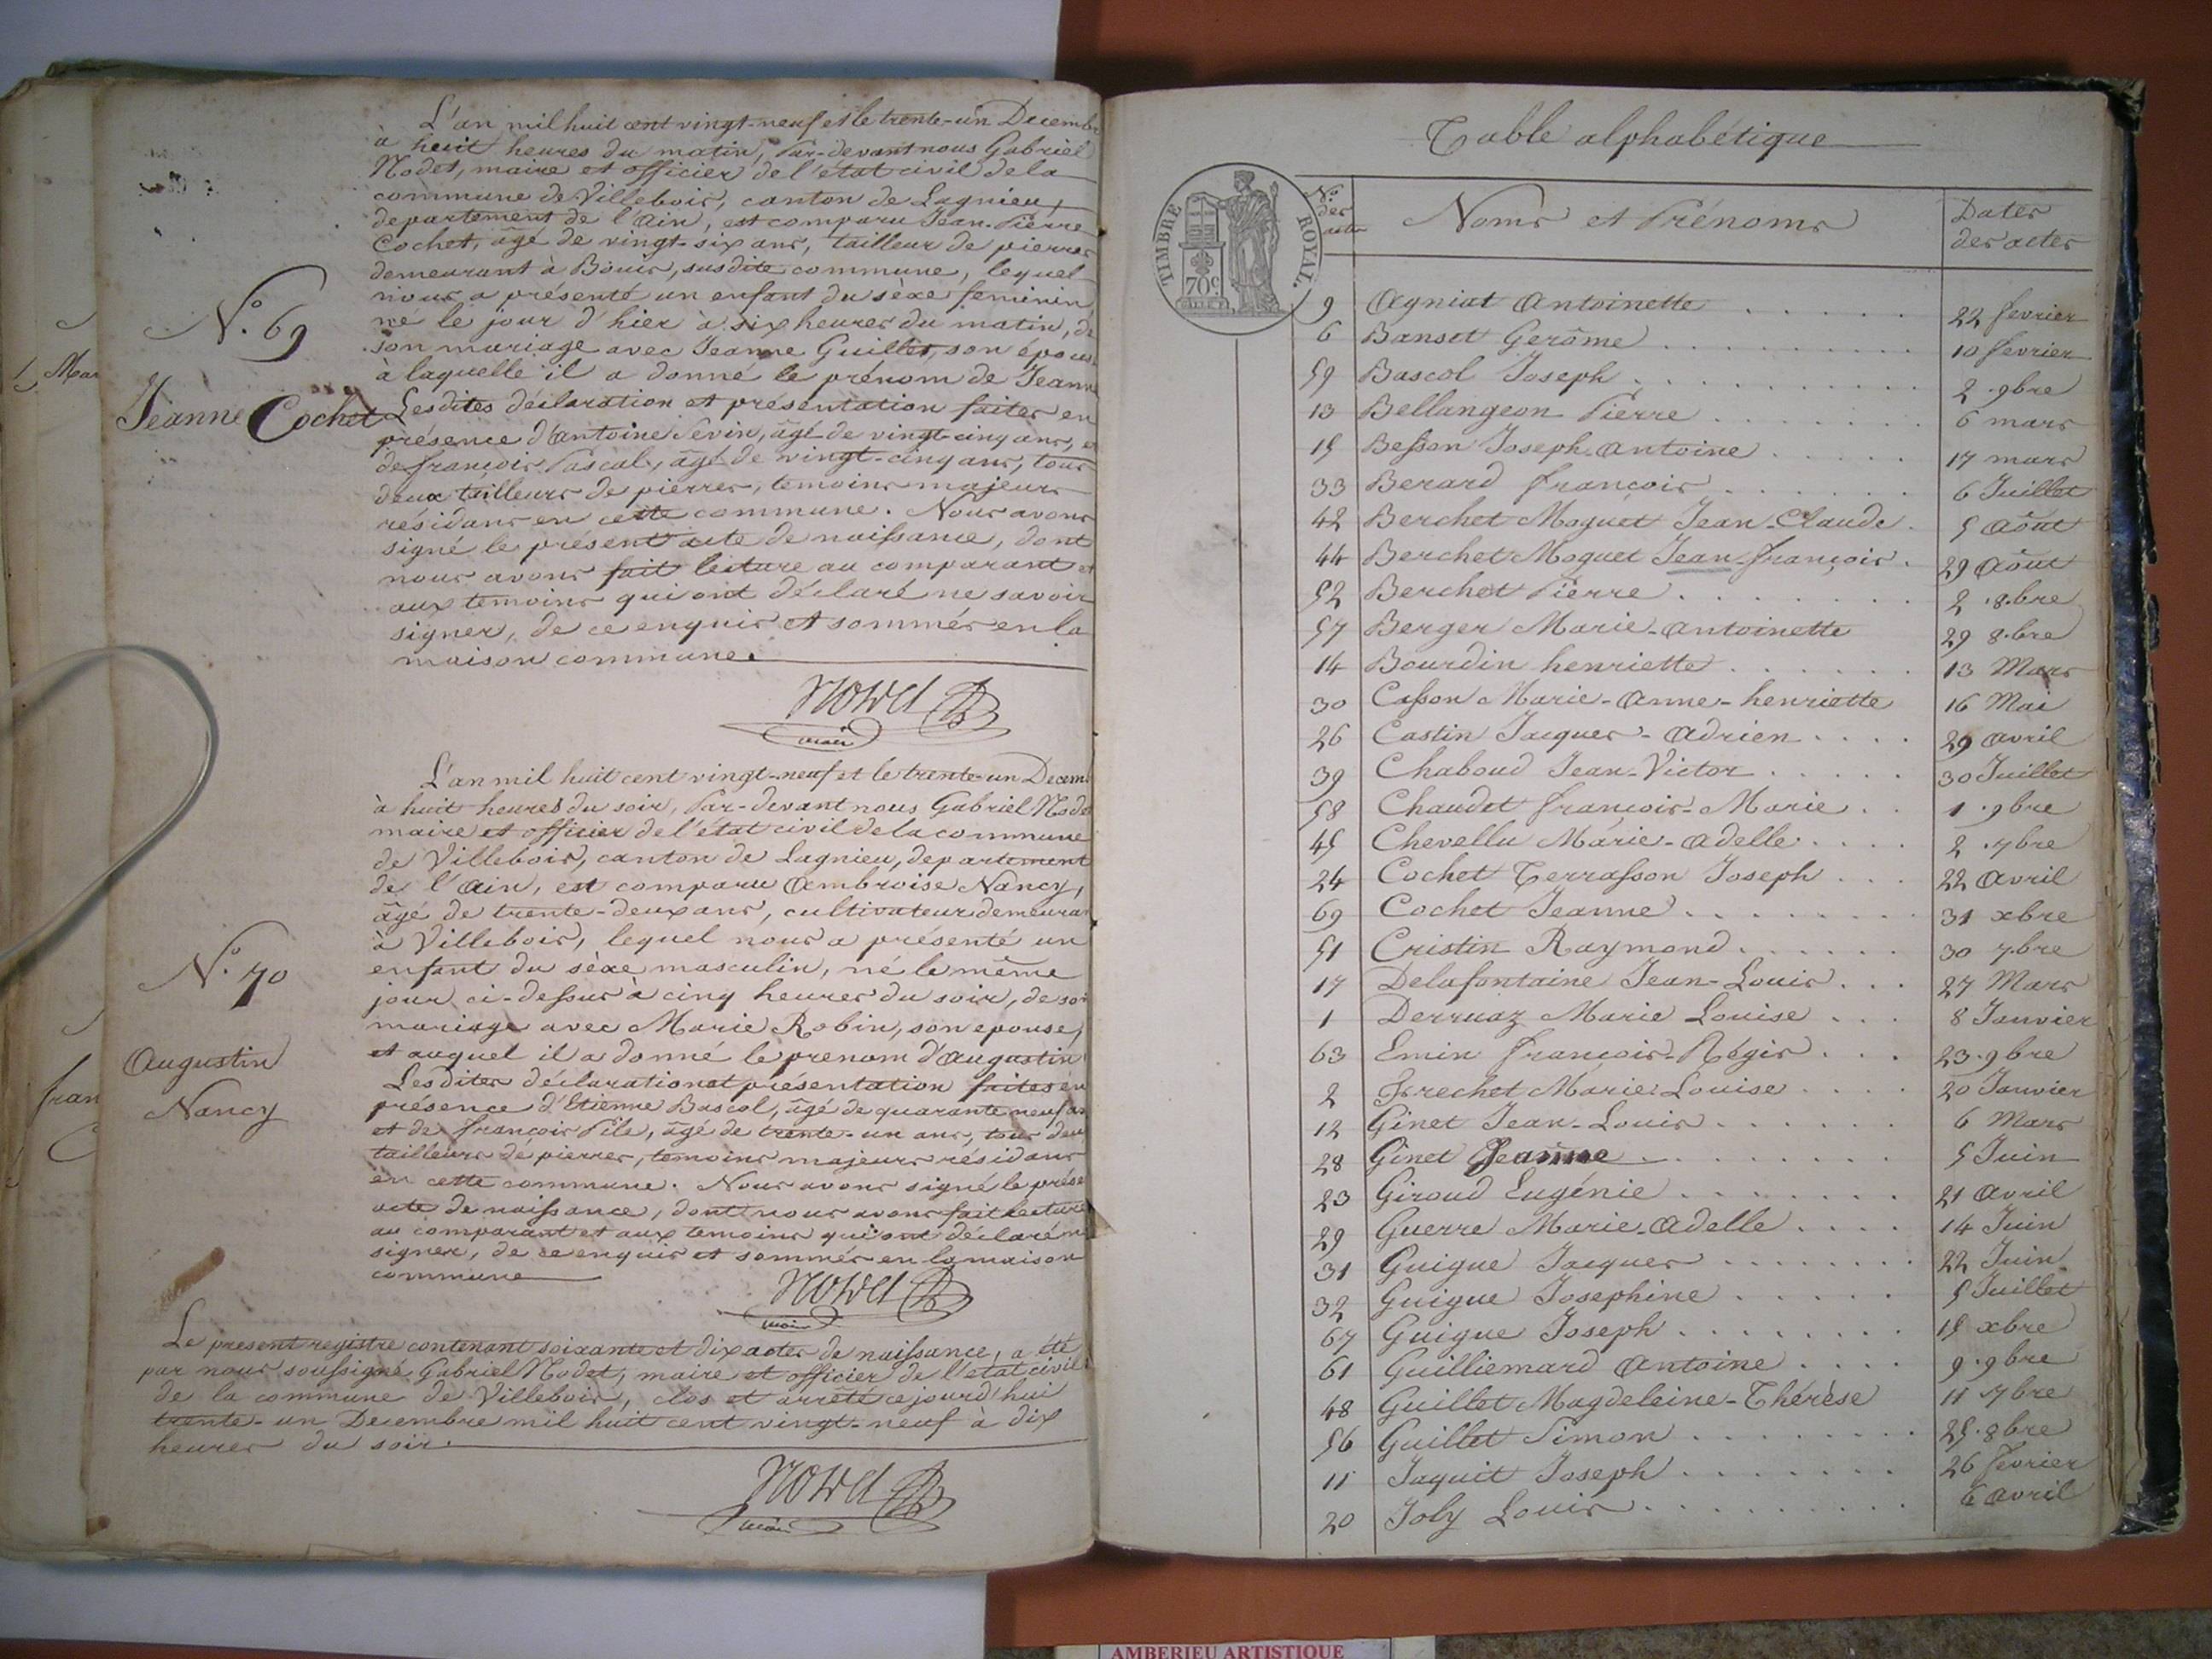 L'an mil huit cent vingt-neuf et le trente-un Decemb
à huit heures du matin, Par-devant nous Gabriel
Nodet, maire et officier de l'état civil de la
commune de Villebois, canton de Lagnieu,
departement de l'Ain, est comparu Jean-Pierre
Cochet, âgé de vingt-six ans, tailleur de pierres
demeurant à Bouis, susdite commune, lequel
nous a présenté un enfant du sèxe feminin
né le jour d'hier à six heures du matin, de
son mariage avec Jeanne Guillet, son épouse
à laquelle il a donné le prénom de Jeanne
Lesdites déclaration et présentation faites en
présence d'Antoine Sevin, âgé de vingt-cinq ans, et
de françois Pascal, âgé de vingt-cinq ans, tous
deux tailleurs de pierres, temoins majeurs
résidans en cette commune. Nous avons
signé le présent acte de naissance, dont
nous avons fait lecture au comparant et
aux temoins qui ont déclaré ne savoir
signer, de ce enquis et sommés en la
maison commune.
N.° 69
Jeanne Cochet
Nodet
maire
L'an mil huit cent vingt-neuf et le trente-un Decem
à huit heures du soir, Par-devant nous Gabriel Node
maire et officier de l'état civil de la commune
de Villebois, canton de Lagnieu, departement
de l'Ain, est comparu Ambroise Nancy,
âgé de trente-deux ans, cultivateur demeura
à Villebois, lequel nous a présenté un
enfant du sèxe masculin, né le même
jour ci-dessus à cinq heures du soir, de son
mariage avec Marie Robin, son epouse,
et auquel il a donné le prenom d'Augustin
Lesdites déclaration et présentation faites en
présence d'Etienne Bascol, âgé de quarante neuf ans
et de françois Pile, âgé de trente-un ans, tous deu
tailleurs de pierres, temoins majeurs résidans
en cette commune. Nous avons signé le prése
acte de naissance, dont nous avons fait lecture
au comparant et aux temoins qui ont déclaré n
signer, de ce enquis et sommés en la maison
commune
N.° 70
Augustin
Nancy
Nodet
maire
Le present registre contenant soixante et dix actes de naissance, a été
par nous soussigné Gabriel Nodet, maire et officier de l'état civil
de la commune de Villebois, clos et arrêté ce jourd'hui
trente-un Decembre mil huit cent vingt-neuf à dix
heures du soir.
Nodet
maire
Mar
fran
Table alphabétique
TIMBRE ROYAL
70c
N.os des actes Noms et Prénoms Dates des actes
9 Agniat Antoinette 22 fevrier
6 Banset Gerôme 10 fevrier
59 Bascol Joseph 2 9bre
13 Bellangeon Pierre 6 mars
15 Besson Joseph-Antoine 17 mars
33 Berard françois 6 Juillet
42 Berchet Moguet Jean-Claude 5 Août
44 Berchet Moguet Jean-françois 29 Août
52 Berchet Pierre 2 8bre
57 Berger Marie-Antoinette 29 8bre
14 Bourdin henriette 13 Mars
30 Casson Marie-Anne-henriette 16 Mai
26 Castin Jacques-Adrien 29 avril
39 Chaboud Jean-Victor 30 Juillet
58 Chaudet françois-Marie 1 9bre
45 Chevellu Marie-Adelle 2 7bre
24 Cochet Terrasson Joseph 22 Avril
69 Cochet Jeanne 31 xbre
51 Cristin Raymond 30 7bre
17 Delafontaine Jean-Louis 27 Mars
1 Derruaz Marie Louise 8 Janvier
63 Emin françois-Régis 23 9bre
2 Frechet Marie Louise 20 Janvier
12 Ginet Jean-Louis 6 Mars
28 Ginet Jeanne 5 Juin
23 Giroud Eugénie 21 avril
29 Guerre Marie-Adelle 14 Juin
31 Guigue Jacques 22 Juin
32 Guigue Josephine 5 Juillet
67 Guigue Joseph 15 xbre
61 Guilliemard Antoine 9 9bre
48 Guillet Magdeleine-Thérèse 11 7bre
56 Guillet Simon 25 8bre
11 Jaquit Joseph 26 fevrier
20 Joly Louis 6 avril
AMBERIEU ARTISTIQUE